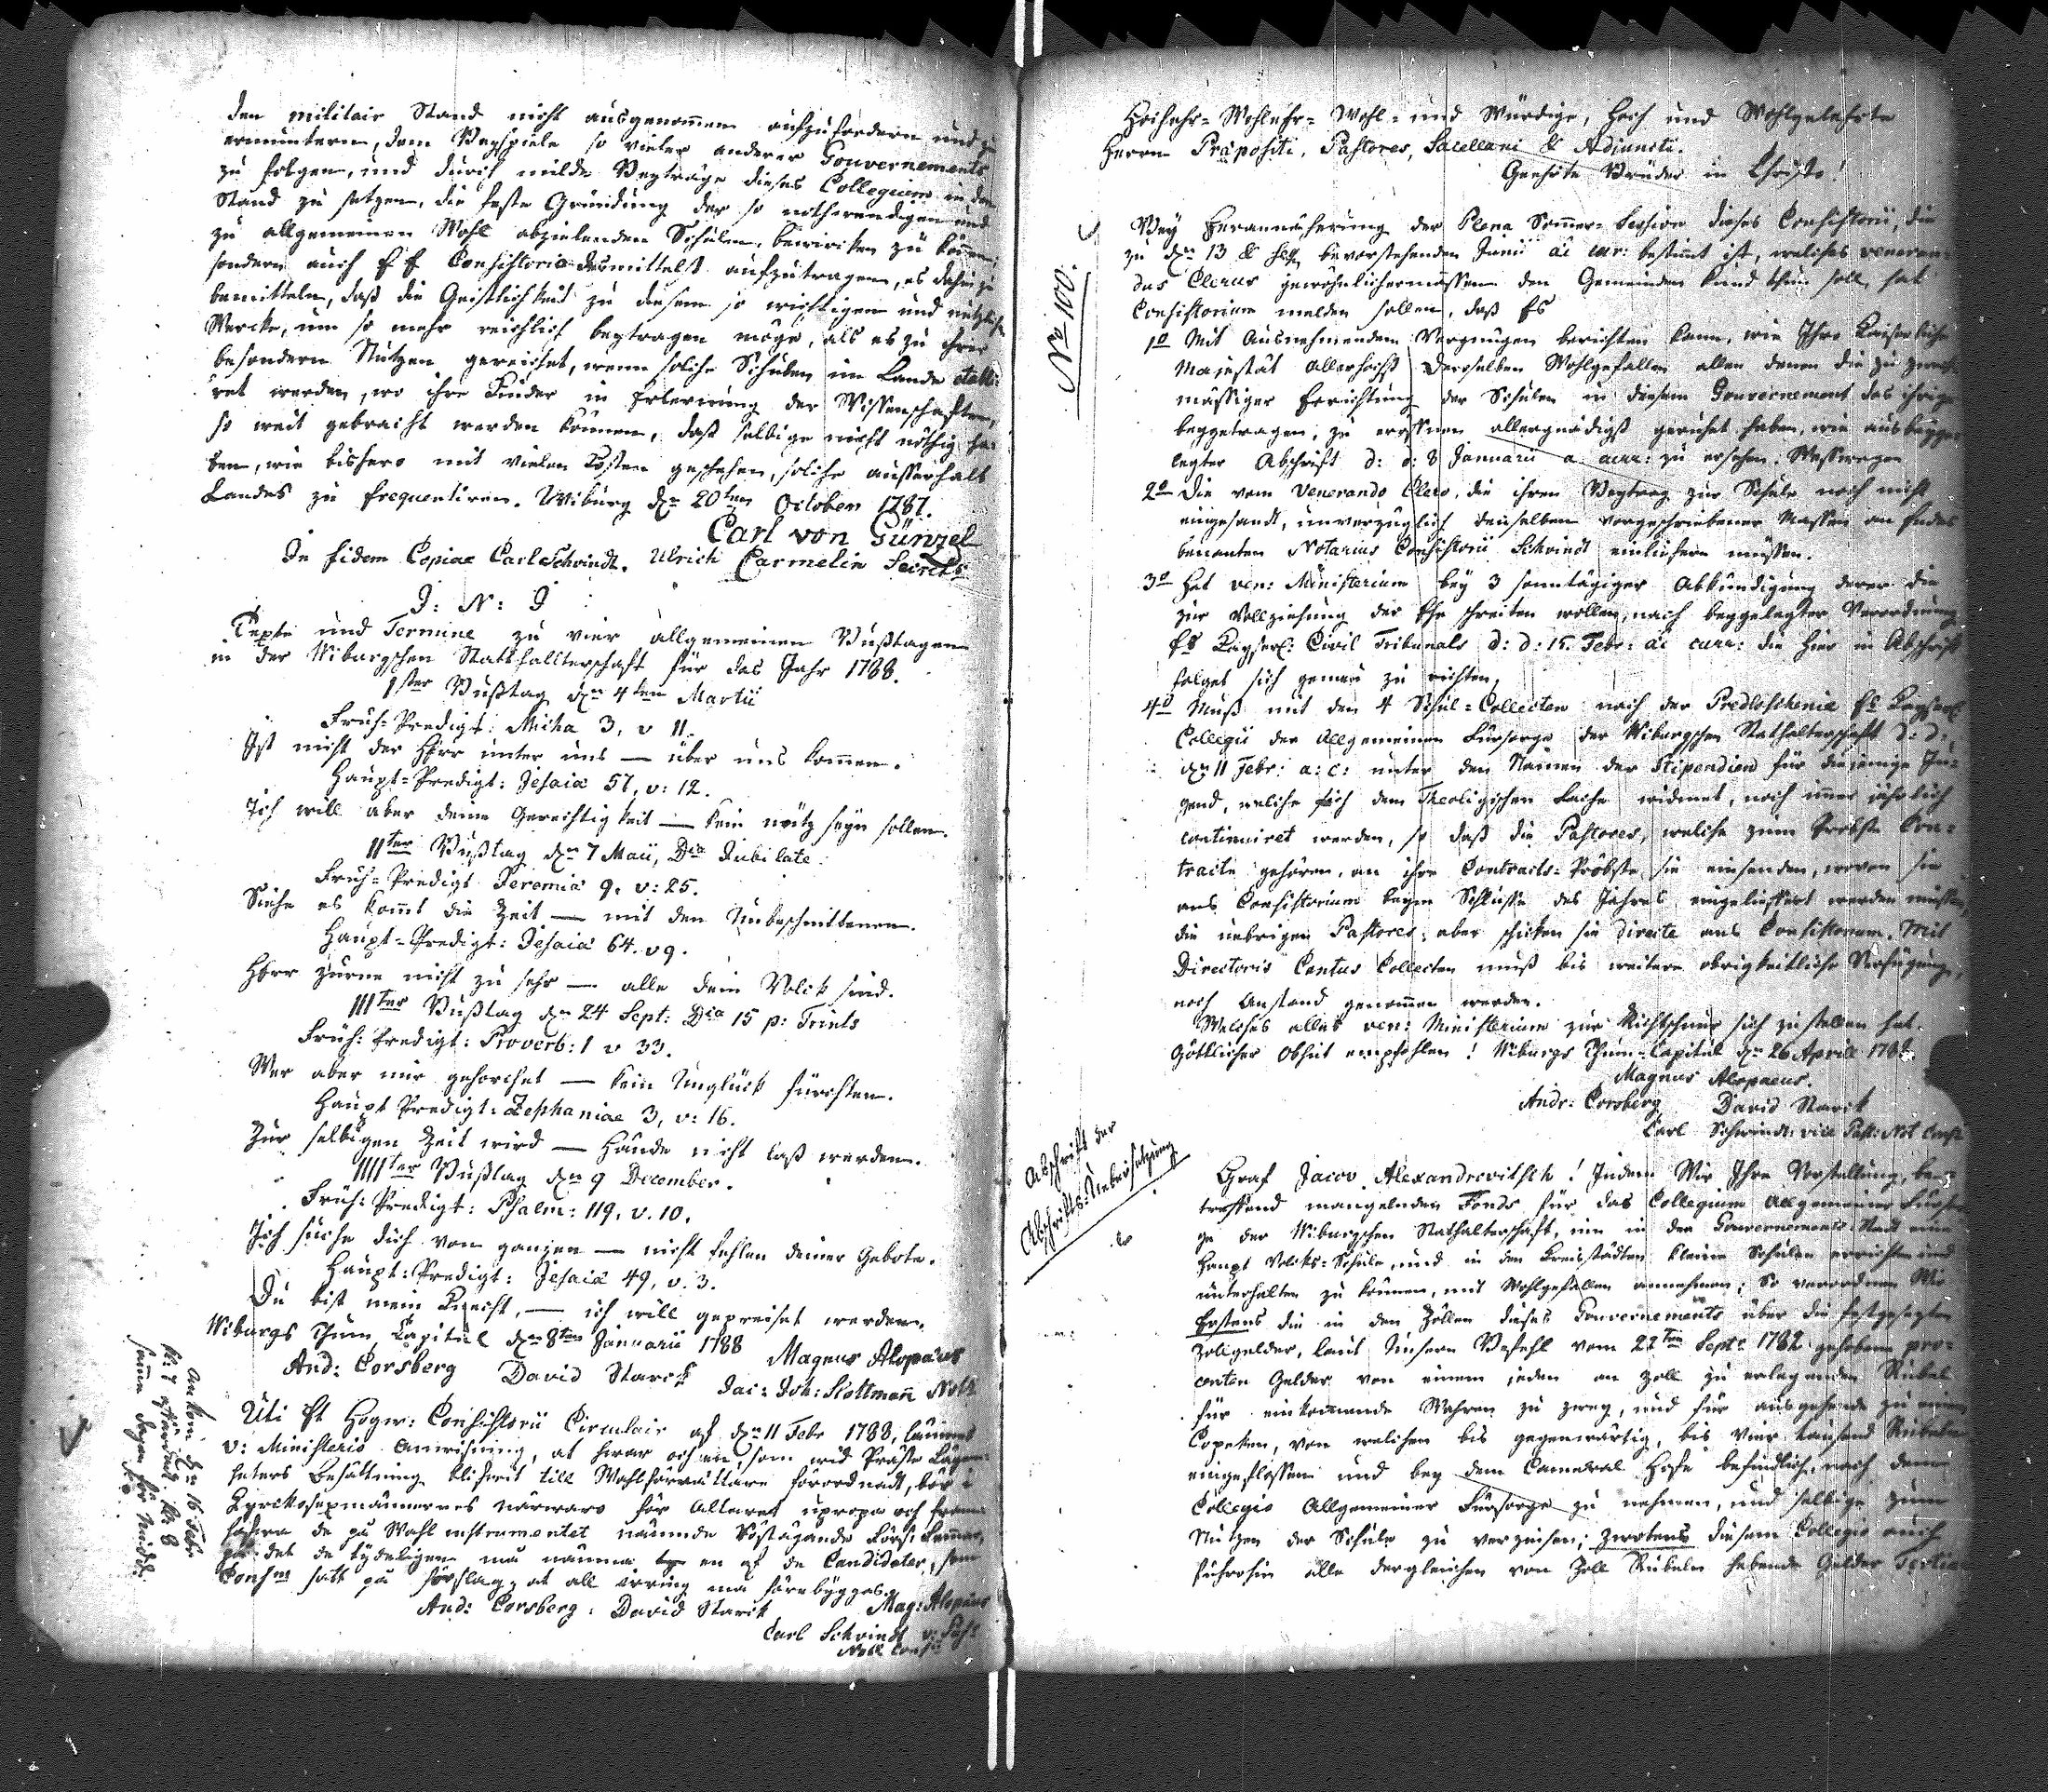 den militair Stand nicht ausgenom̄en aufzufordern und zu
ermuntern, dem Beyspiele so vieler anderer Gouvernements
zu folgen, und durch milde Beyträge dieses Collegium in den
Stand zu setzen, die feste Gründung der so nothwendigen und
zu allgemeinen Wohl abzielenden Schulen, bewircken zu könen,
sondern auch Ef Consistorio desmittelst aufzutragen, es dahin zu
bemitteln, daß die Geistlichkeit zu diesem so wichtigen und nützlichen
Wercke, um so mehr reichlich beytragen möge, als es zu ihren
besondern Nutzen gereichet, wenn solche Schulen im Lande etabli-
ret werden, wo ihre Kinder in Erlernung der Wissenschaften,
so weit gebracht werden können, daß selbige nicht nöthig ha-
ben, wie bishero mit vielen Kosten geschehen, solche ausserhalb
Landes zu frequentiren. Wiburg dn 20ten October 1787.
Carl von Günzel
In fidem Copiae Carl Schvindt. Ulrich Carmelin Secrets
J: N: J
Texte und Termine zu vier allgemeinen Bußtagen
in der Wiburgschen Statthallterschaft für das Jahr 1788.
1ster Bußtag dn 4ten Martii
Früh-Predigt: Micha 3, v 11.
Ist nicht der Herr unter uns — über uns kom̄en.
Haupt-Predigt: Jesaiä 57, v: 12.
Ich will aber deine Gerechtigkeit — kein nütz seyn sollen.
IIter Bußtag dn 7 Maii, Dca Jubilate.
Früh-Predigt Jeremiä 9. v: 25.
Siehe es kom̄t die Zeit — mit den Unbeschnittenen.
Haupt-Predigt: Jesaiä 64. v 9.
Herr zürne nicht zu sehr — alle dein Volck sind.
IIIter Bußtag dn 24 Sept: Dca 15 p: Trinits
Früh: Predigt: Proverb: 1 v 33.
Wer aber mir gehorchet — kein Unglück fürchten.
Haupt Predigt: Zephaniae 3, v: 16.
Zur selbigen Zeit wird — Hände nicht laß werden.
IIIIter Bußtag dn 9 December.
Früh: Predigt: Psalm: 119. v. 10.
Ich suche dich von ganzen — nicht fehlen deiner Gebote.
Haupt: Predigt: Jesaiä 49, v. 3.
Du bist mein Knecht, — ich will gepreiset werden.
Wiburgs Thum Capitul dn 8ten Januarii 1788 Magnus Alopæus
And: Corsberg David Starck Jac: Joh: Kottman̄ Nots
Uti Et Högw: Consistorii Circulair af dn 11 Febr 1788, lämnes
v: Ministerio anwisning, at hwar och en, som wid Präste Lägen-
heters besättning blifwit till Wahlförrättare förordnadt, bör i
Kyrckosexmännernes närwaro för Altaret upropa och fram
de på Wahl instrumentet nämnde Röstägande
det de tydeligen må nämna en af de Candidater, som
Consm satt på förslag, at all irring må förebyggas.
And: Corsberg. David Starck Mag: Alopæus
Carl Schvindt v: Past
Nots Consii
Ankom dn 16 Febr
kl: 7 afsändt kl 8
sam̄a dagen för middn
Hochehr- Wohlehr- Wohl- und Würdige, Hoch und Wohlgelehrte
Herren Präpositi, Pastores, Sacellani & Adjuncti.
Geehrte Brüder in Christo!
No 1100.
Bey Herannäherung der Plena Som̄er-Session dieses Consistorii, die
zu dn 13 & seq bevorstehenden Junii ai cur: bestimt ist, welches veneran-
dus Clerus gewöhnlichermassen den Gemeinden kund thun soll, hat
Consistorium melden sollen, daß Es
1o Mit Ausnehmendem Vergnügen berichten kann, wie Ihro Kaiserliche
Majestät Allerhöchst Deroselben Wohlgefallen allen denen die zu zweck-
mässiger Errichtung der Schulen in diesem Gouvernement das ihrige
beygetragen, zu eröffnen allergnädigst geruhet haben, wie aus beyge-
legter Abschrift d: d: 8 Januarii a: curr: zu ersehen. Wesswegen
2o Die vom Venerando Clero, die ihren Beytrag zur Schule noch nicht
eingesandt, unverzüglich denselben vorgeschriebener Massen an Endes
benanten Notarius Consistorii Schvindt einliefern müssen.
3o Hat ven: Ministerium bey 3 sonntägiger Abkündigung derer die
zur Vollziehung der Ehe schreiten wollen, nach beygelegter Verordnung
Es Kayserl: Civil Tribunals d: d: 15. Febr: ai curr: die hier in Abschrift
folget sich genau zu richten.
4o Muß mit den 4 Schul-Collecten nach der Predloschenie Es Kayserl
Collegii der Allgemeinen Fürsorge der Wiburgschen Stathalterschaft d: d:
dn 11 Febr: a: c: unter den Namen der Stipendien für diejenige Ju-
gend, welche sich dem Theologischen Fache widmet, noch im̄er jährlich
continuiret werden, so daß die Pastores, welche zum Probste Con-
tracte gehören, an ihre Contracts-Pröbste sie einsenden, wovon sie
ans Consistorium beym Schlusse des Jahres eingeliefert werden müssen,
die uebrigen Pastores aber schicken sie directe ans Consistorium. Mit
Directoris Cantus Collecten muß bis weitere obrigkeitliche Verfügung,
noch Anstand genom̄en werden.
Welches alles ven: Ministerium zur Richtschnur sich zustellen hat.
Göttlicher Obhut empfohlen! Wiburgs Thum-Capitul dn 26 April 1788.
Magnus Alopaeus.
Andr: Corsberg David Starck
Carl Schvindt vice Past: Not Consi
Abschrift der
Abschrifts-Uebersetzung
Graf Jacov Alexandrovitsch! Indem Wir Ihre Vorstellung, be-
treffend mangelnden Fonds für das Collegium Allgemeiner Fürsor-
ge der Wiburgschen Stathalterschaft, um in der Gouvernements-Stadt eine
Haupt Volcks-Schule, und in den Kreisstädten kleine Schulen errichten und
unterhalten zu können, mit Wohlgefallen annehmen; So verordnen Wir
Erstens die in den Zöllen dieses Gouvernements über die festgesezten
Zollgelder, laut Unsern Befehl vom 22ten Septr 1782 gehobene pro-
centen Gelder von einem jeden an Zoll zu erlegenden Rubel
für einkommende Wahren zu zwey, und für ausgehende zu einem
Copeken, von welchen bis gegenwärtig, bis vier tausend Rubeln
eingeflossen und bey dem Cameral Hofe befindlich, nach dem
Collegio Allgemeiner Fürsorge zu nehmen, und selbige zum
Nutzen der Schule zu verzinsen; zweytens diesem Collegio auch
fuhrohin alle dergleichen von Zoll Rubeln hebende Gelder